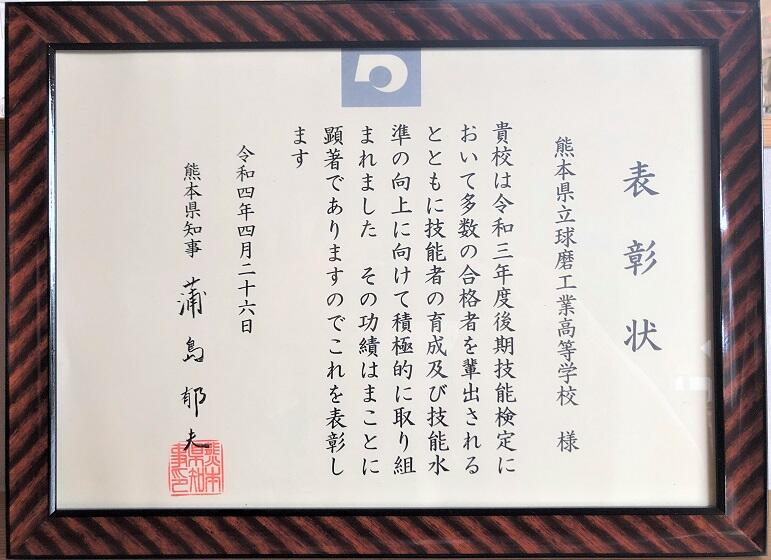 表彰状
熊本県立球磨工業高等学校 様
貴校は令和三年度後期技能検定に
おいて多数の合格者を輩出される
とともに技能者の育成及び技能水
準の向上に向けて積極的に取り組
まれました その功績はまことに
顕著でありますのでこれを表彰し
ます
令和四年四月二十六日
熊本県知事 蒲島郁夫
熊本県知事印